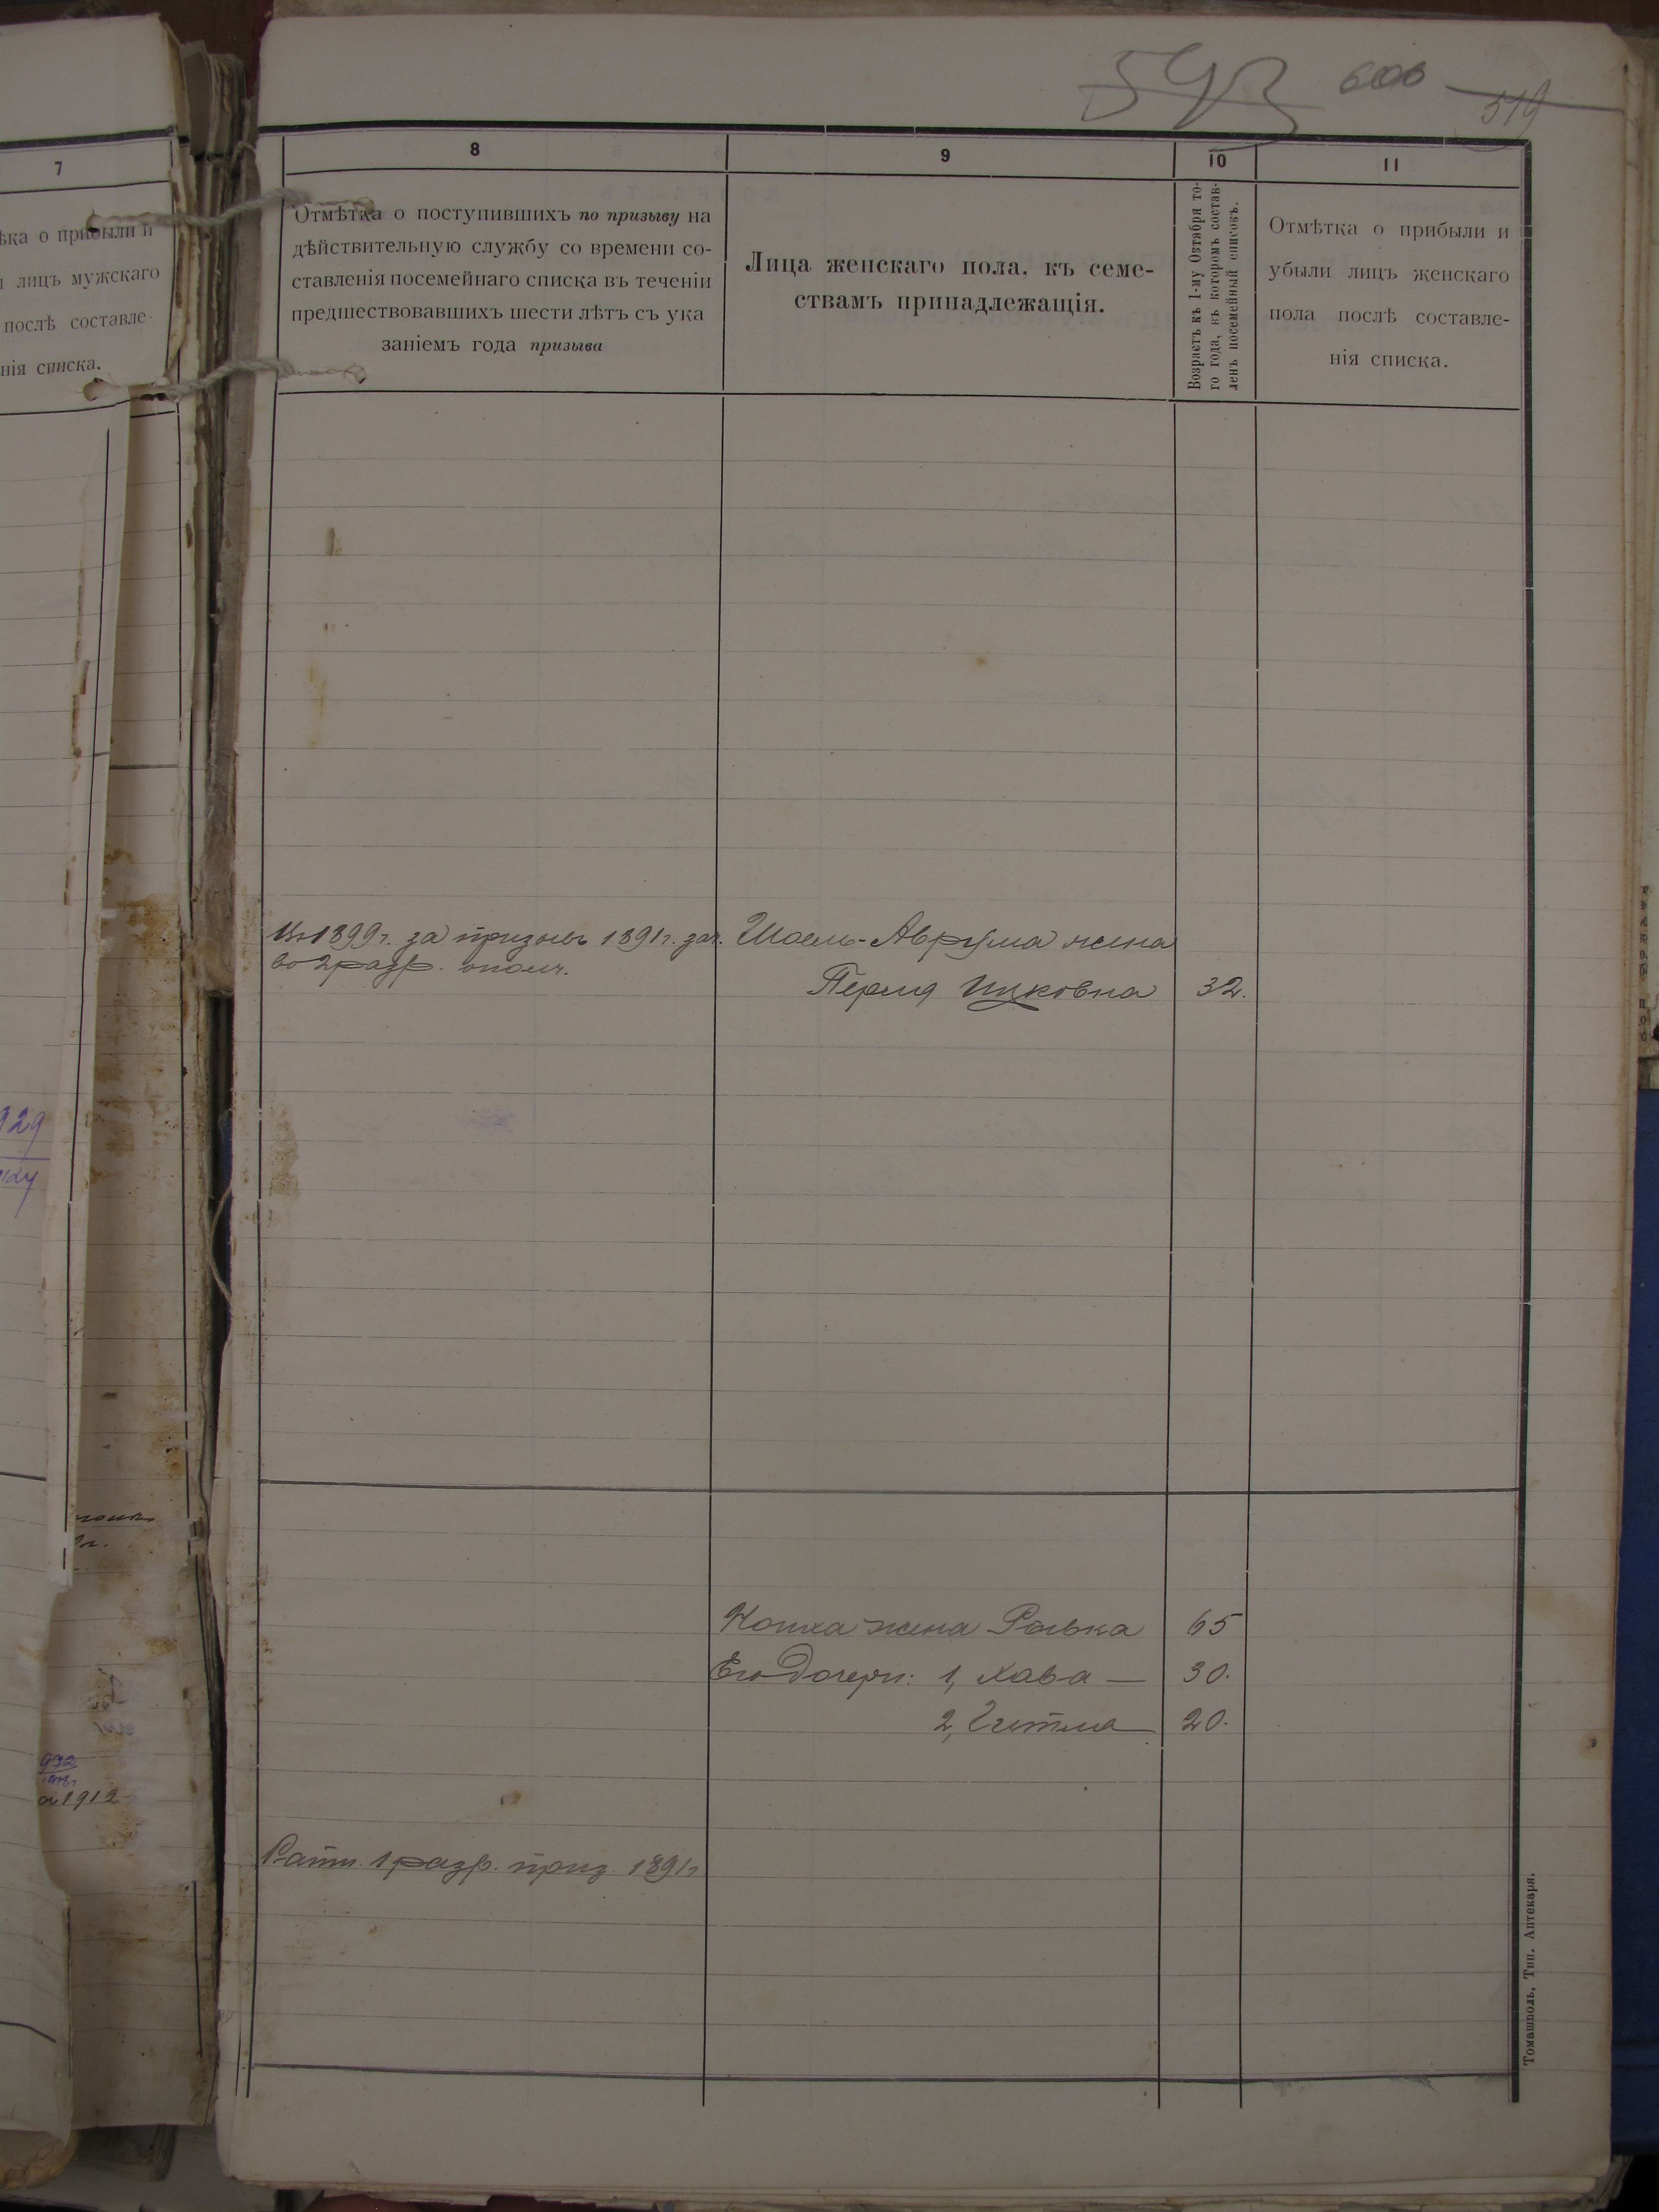 593 600 519
7
ѣка о прибыли и
и лицъ мужскаго
послѣ составле-
нія списка.
8
Отмѣтка о поступившихъ по призыву на
дѣйствительную службу со времени со-
ставленія посемейнаго списка въ теченіи
предшествовавшихъ шести лѣтъ съ ука
заніемъ года призыва
9
Лица женскаго пола, къ семе-
ствамъ принадлежащія.
10
Возрастъ къ 1-му Октября то-
го года, въ которомъ состав-
ленъ посемейный списокъ.
11
Отмѣтка о прибыли и
убыли лицъ женскаго
пола послѣ составле-
нія списка.
Въ 1899 г. за призывъ 1891 г. зач.
во 2 разр. ополч.
Шоель-Аврума жена
Перля Ицковна 32.
929
жена Ровка 65
Его дочери: 1, Хава — 30.
2, Гитля 20.
972
1912
Ратн. 1 разр. приз. 1891 г
Томашполь, Тип. Аптекаря.